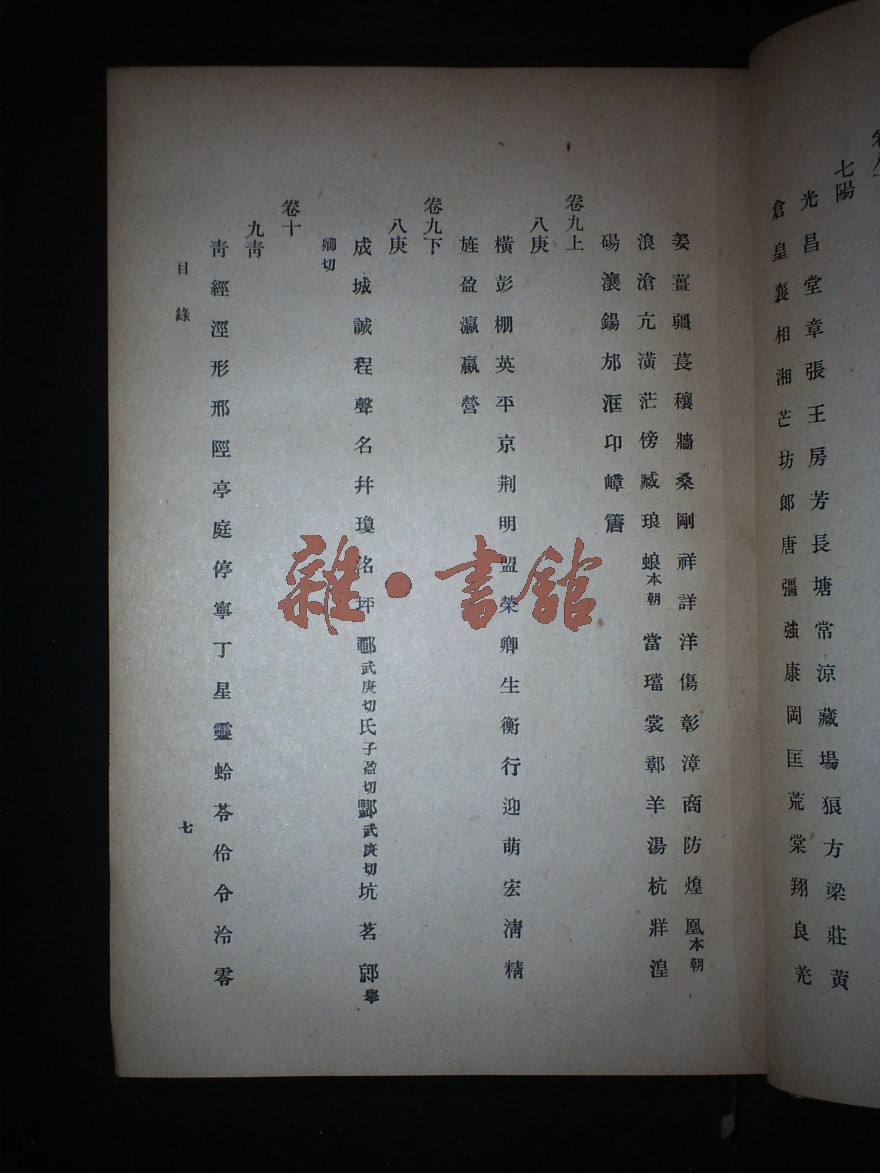 七陽
光昌堂章張王房芳長塘常涼藏場狼方梁莊黃
倉皇襄相湘芒坊郎唐彊強康岡匡荒棠翔良羌
姜薑疆萇穰牆桑剛祥詳洋傷彰漳商防煌凰本朝
浪滄亢潢茫傍臧琅蜋本朝當璫裳鄣羊湯杭牂湟
碭瀼鍚邡汪卬嶂簹
卷九上
八庚
橫彭棚英平京荆明盟榮卿生衡行迎萌宏淸精
旌盈瀛嬴營
卷九下
八庚
成城誠程聲名幷瓊洺坪郾武庚切氏子盈切鄳武庚切坑茗䣆舉
卿切
卷十
九靑
靑經涇形邢陘亭庭停寧丁星靈蛉苓伶令泠零
目錄
七
雜·書館